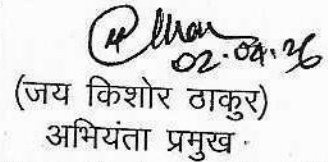 02.04.26
(जय किशोर ठाकुर)
अभियंता प्रमुख